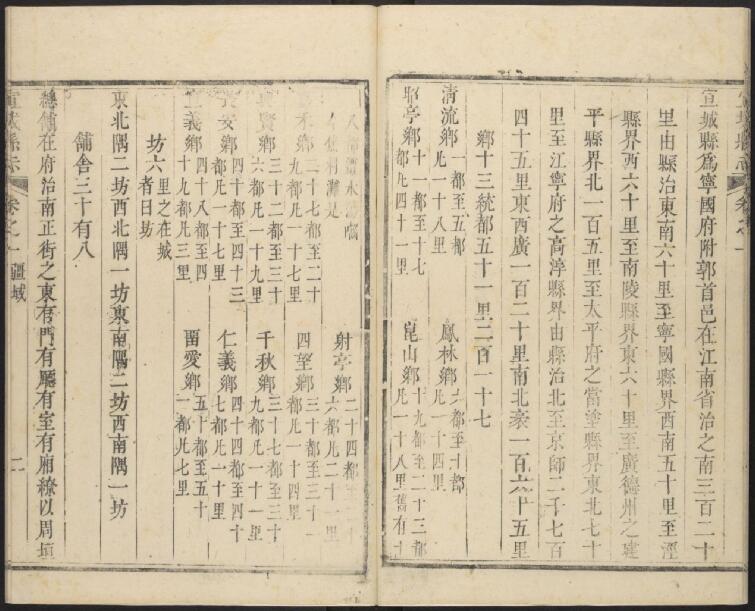 宣城縣爲寧國府附郭首邑在江南省治之南三百二十
里由縣治東南六十里至寧國縣界西南五十里至涇
縣界西六十里至南陵縣界東六十里至廣德州之建
平縣界北一百五里至太平府之當塗縣界東北七十
里至江寧府之高淳縣界由縣治北至京師二千七百
四十五里東西廣一百二十里南北袤一百六十五里
鄉十三統都五十一里二百一十七
清流鄉一都至五都凡一十八里 鳳林鄉六都至十都凡一十四里
昭亭鄉十一都至十七都凡四十一里 崑山鄉十九都至二十三都凡一十八里舊有十
八都 射亭鄉二十四都 六都凡二十一里
二十七都至二十九都凡一十里 四望鄉三十都至三十一都凡一十四里
賢鄉三十二都至三十六都凡一十九里 千秋鄉三十七都至三十九都凡一十一里
長安鄉四十都至四十三都凡一十七里 仁義鄉四十四都至四十七都凡一十里
宣義鄉四十八都至四十九都凡三里 畱愛鄉五十都至五十一都凡七里
坊六里之在城者曰坊
東北隅二坊西北隅一坊東南隅二坊西南隅一坊
舖舍三十有八
總舖在府治南正街之東有門有廳有室有廂繚以周垣
宣城縣志 卷之一 疆域 二